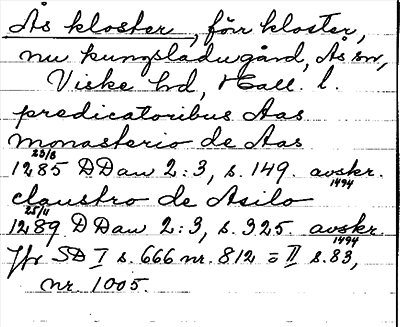 Ås kloster, förr kloster,
nu kungsladugård, Ås sn,
Viske hd, Hall. l.
predicatoribus Aas
monasterio de Aas
1285 23/8 DDan 2:3, s. 149. avskr. 1494
claustro de Asilo
1289 25/11 DDan 2:3, s. 325. avskr. 1494
Jfr SD I s. 666 nr. 812 = II s. 83,
nr. 1005.